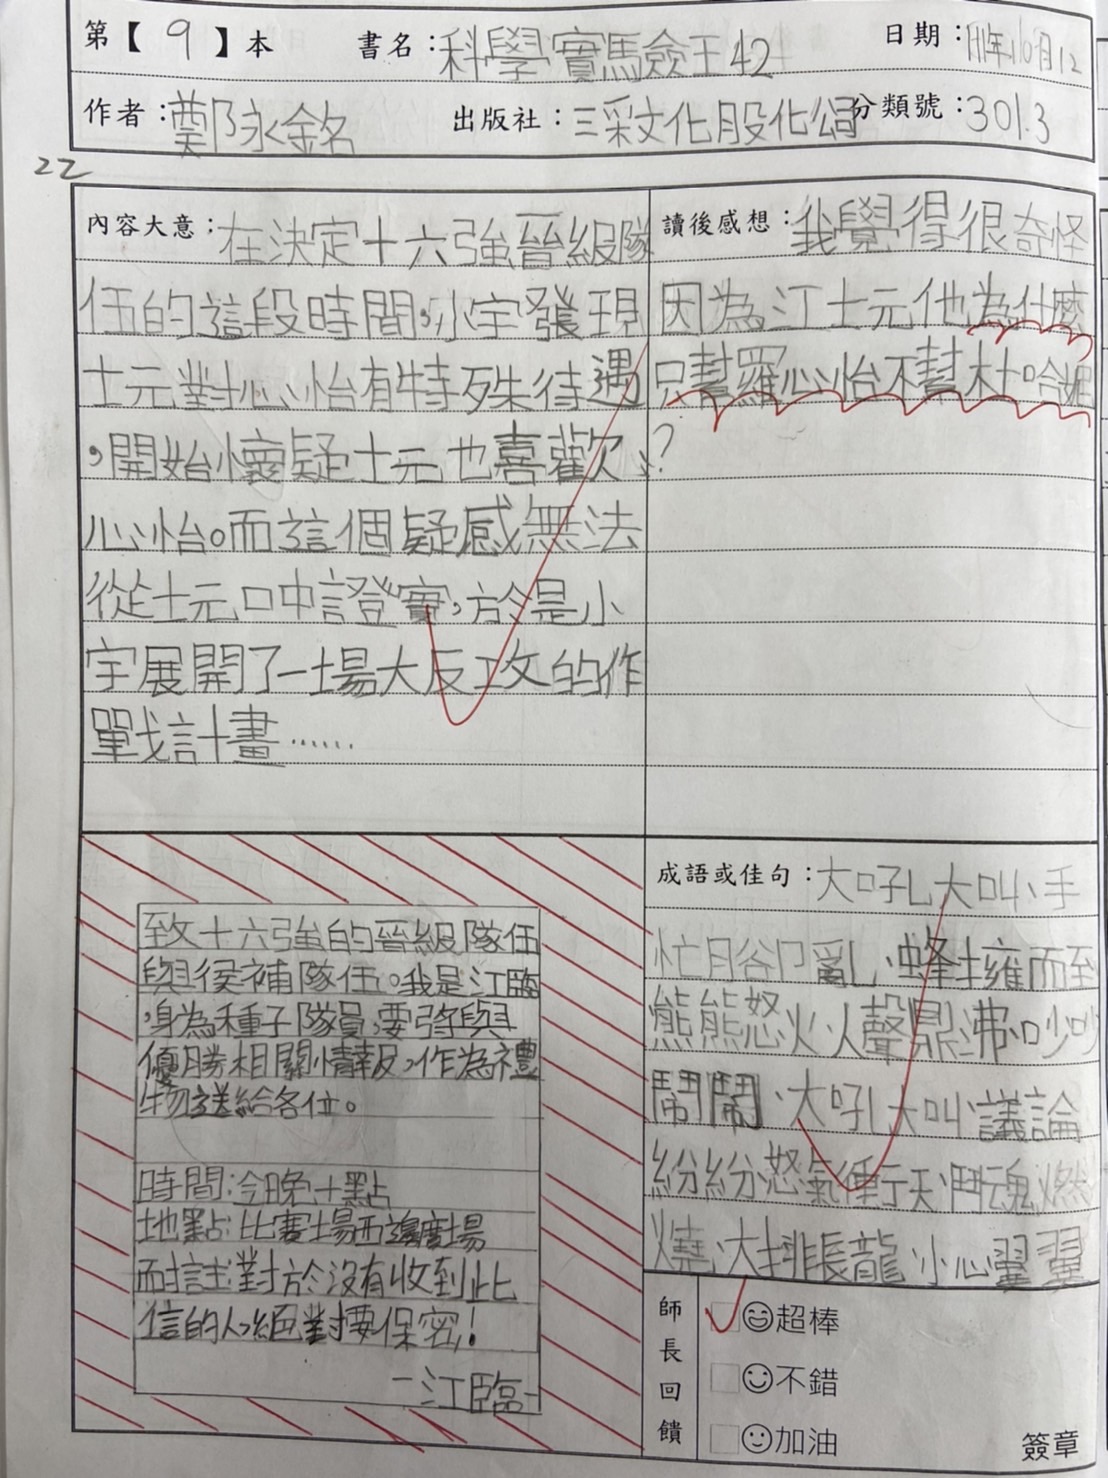 第【9】本 書名：科學實驗王42 日期：111年10月12
作者：鄭永銘 出版社：三采文化股化公司 分類號：301.3
22
內容大意：在決定十六強晉級隊
伍的這段時間，小宇發現
士元對心怡有特殊待遇
，開始懷疑士元也喜歡
心怡。而這個疑惑無法
從士元口中證實，於是小
宇展開了一場大反攻的作
戰計畫……
讀後感想：我覺得很奇怪
因為江士元他為什麼
只幫羅心怡不幫杜哈妮
？
致十六強的晉級隊伍
與侯補隊伍。我是江臨
，身為種子隊員，要將與
優勝相關情報，作為禮
物送給各位。
時間：今晚十點
地點：比賽場西邊廣場
而註：對於沒有收到此
信的人，絕對要保密！
－江臨－
成語或佳句：大吼大叫、手
忙腳亂、蜂擁而至
熊熊怒火、人聲鼎沸、吵吵
鬧鬧、大吼大叫、議論
紛紛、怒氣衝天、鬥魂燃
燒、大排長龍、小心翼翼
師長回饋
超棒
不錯
加油
簽章